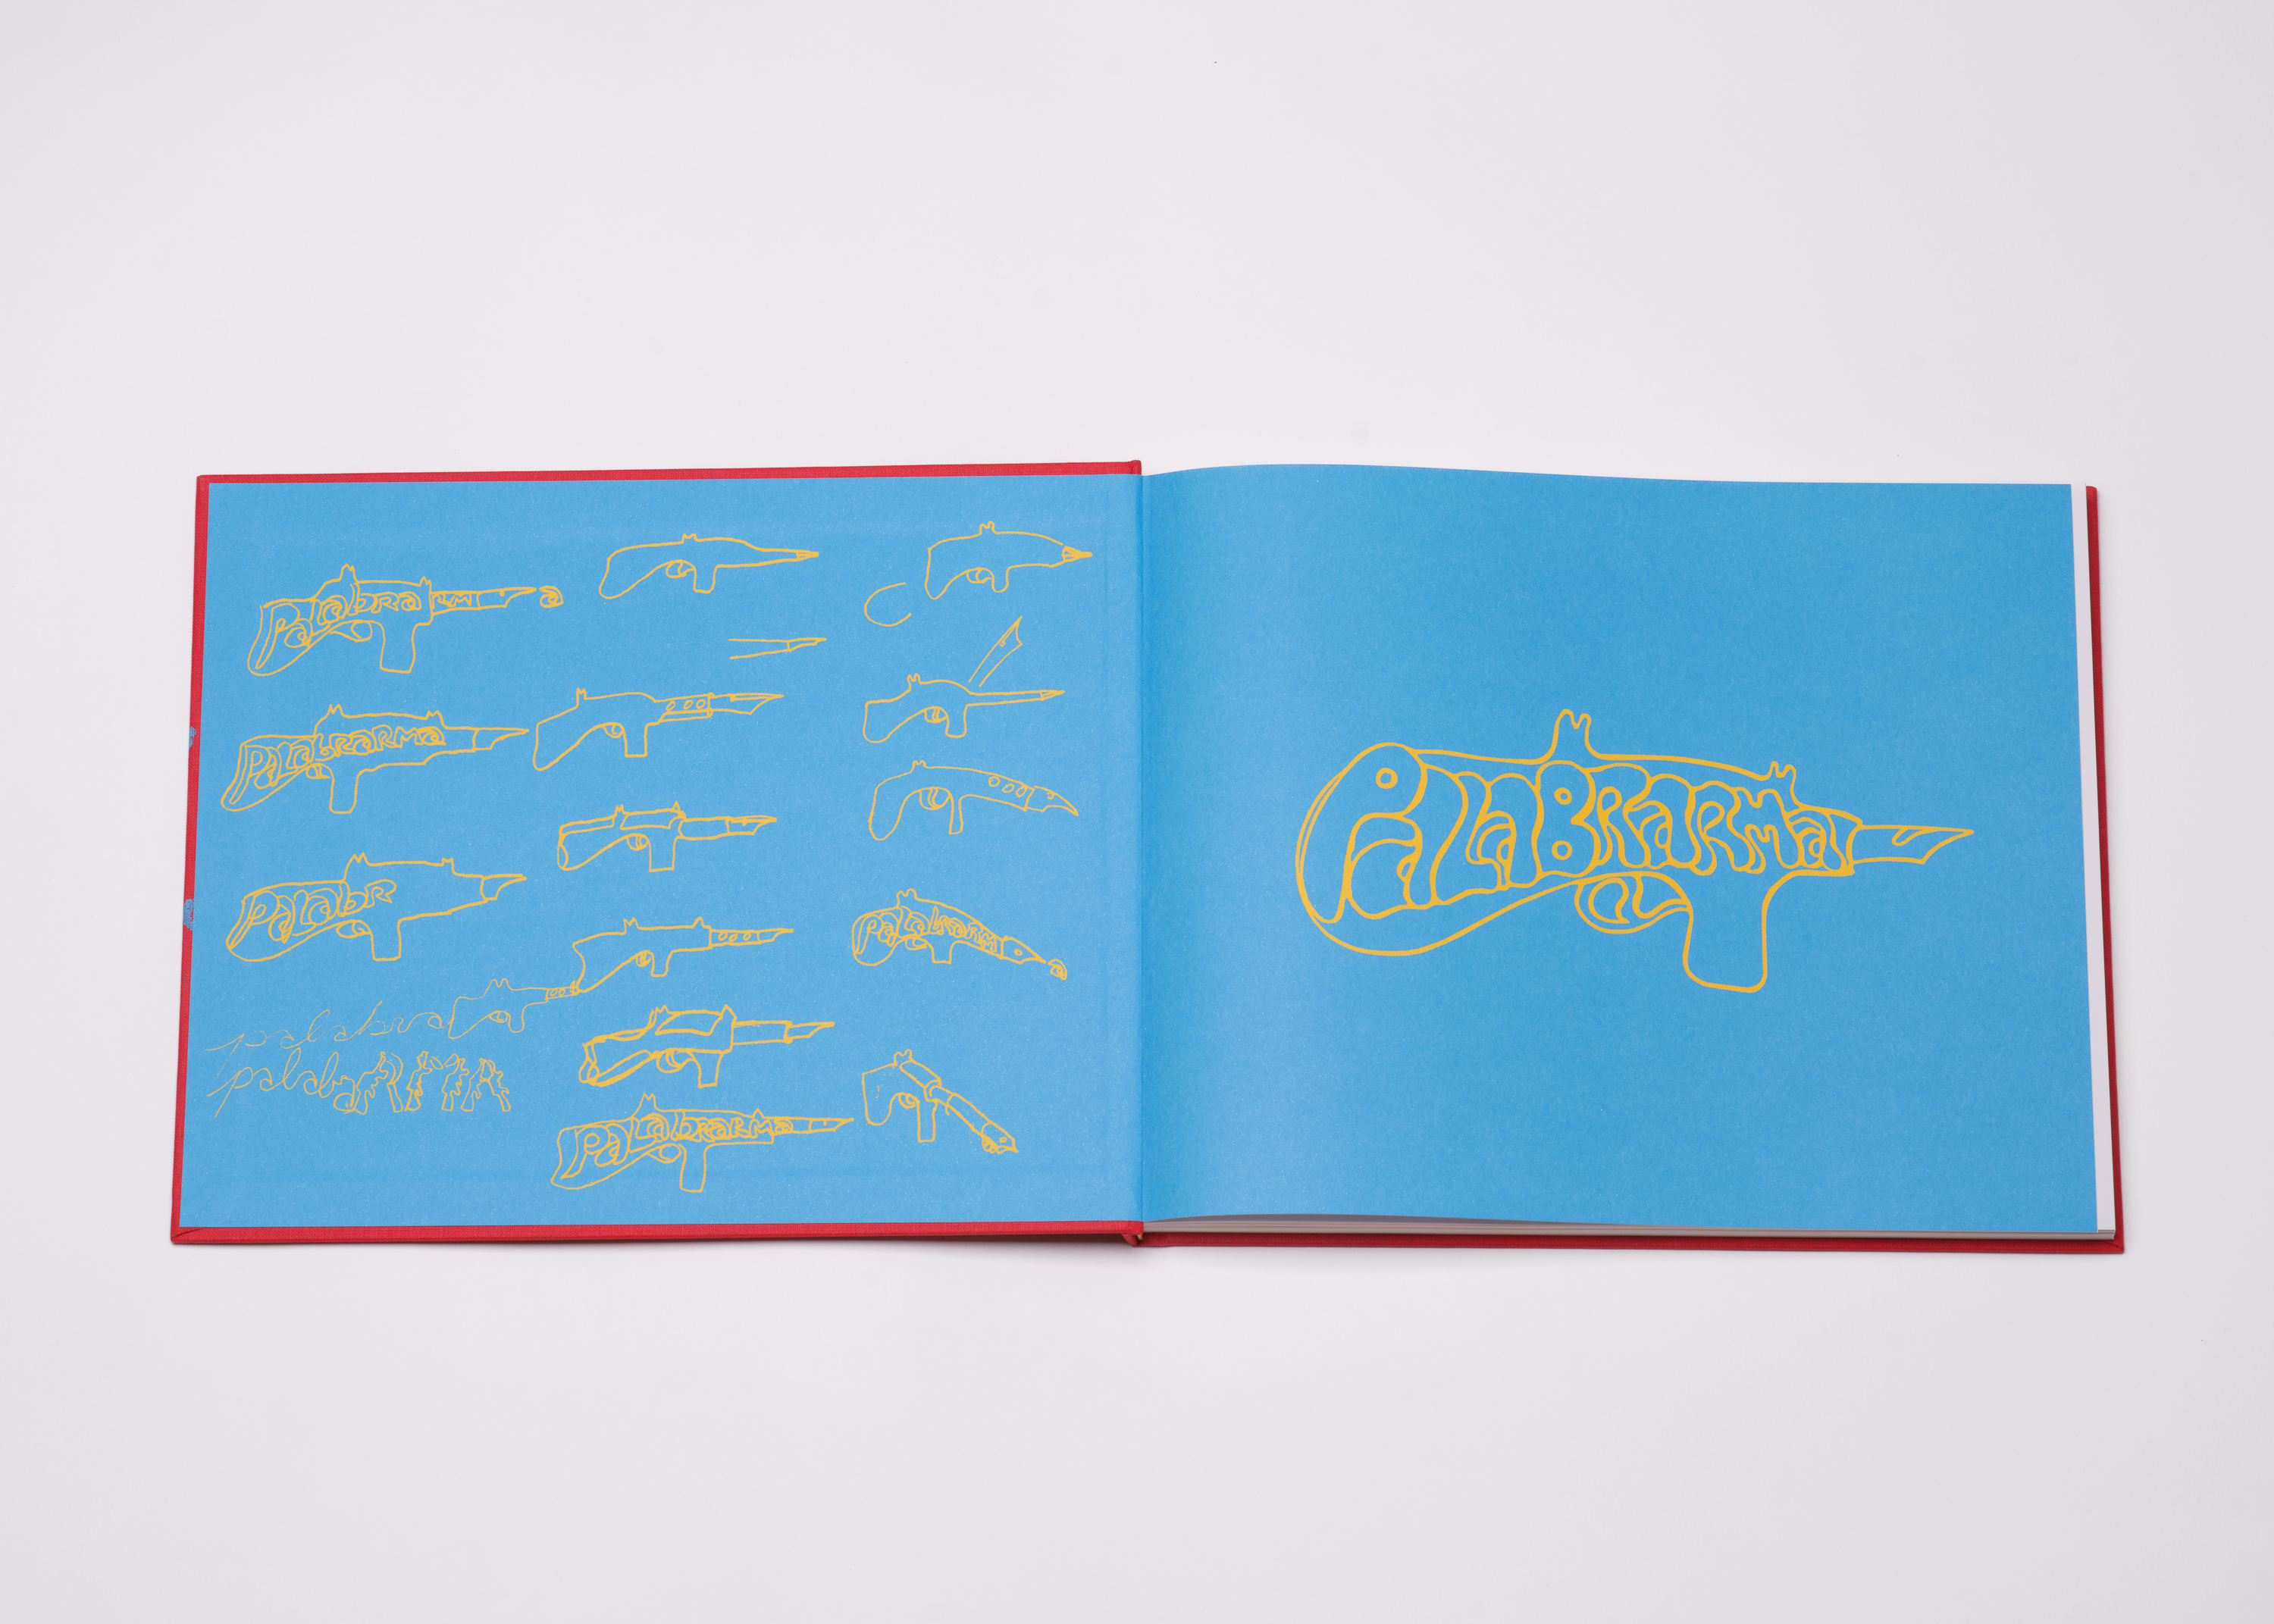 Palabra arma
Palabrarma
Palabr
palabra
palabrARMA
PalabraRMa
PalabRaRMa
PalaBRaRMa